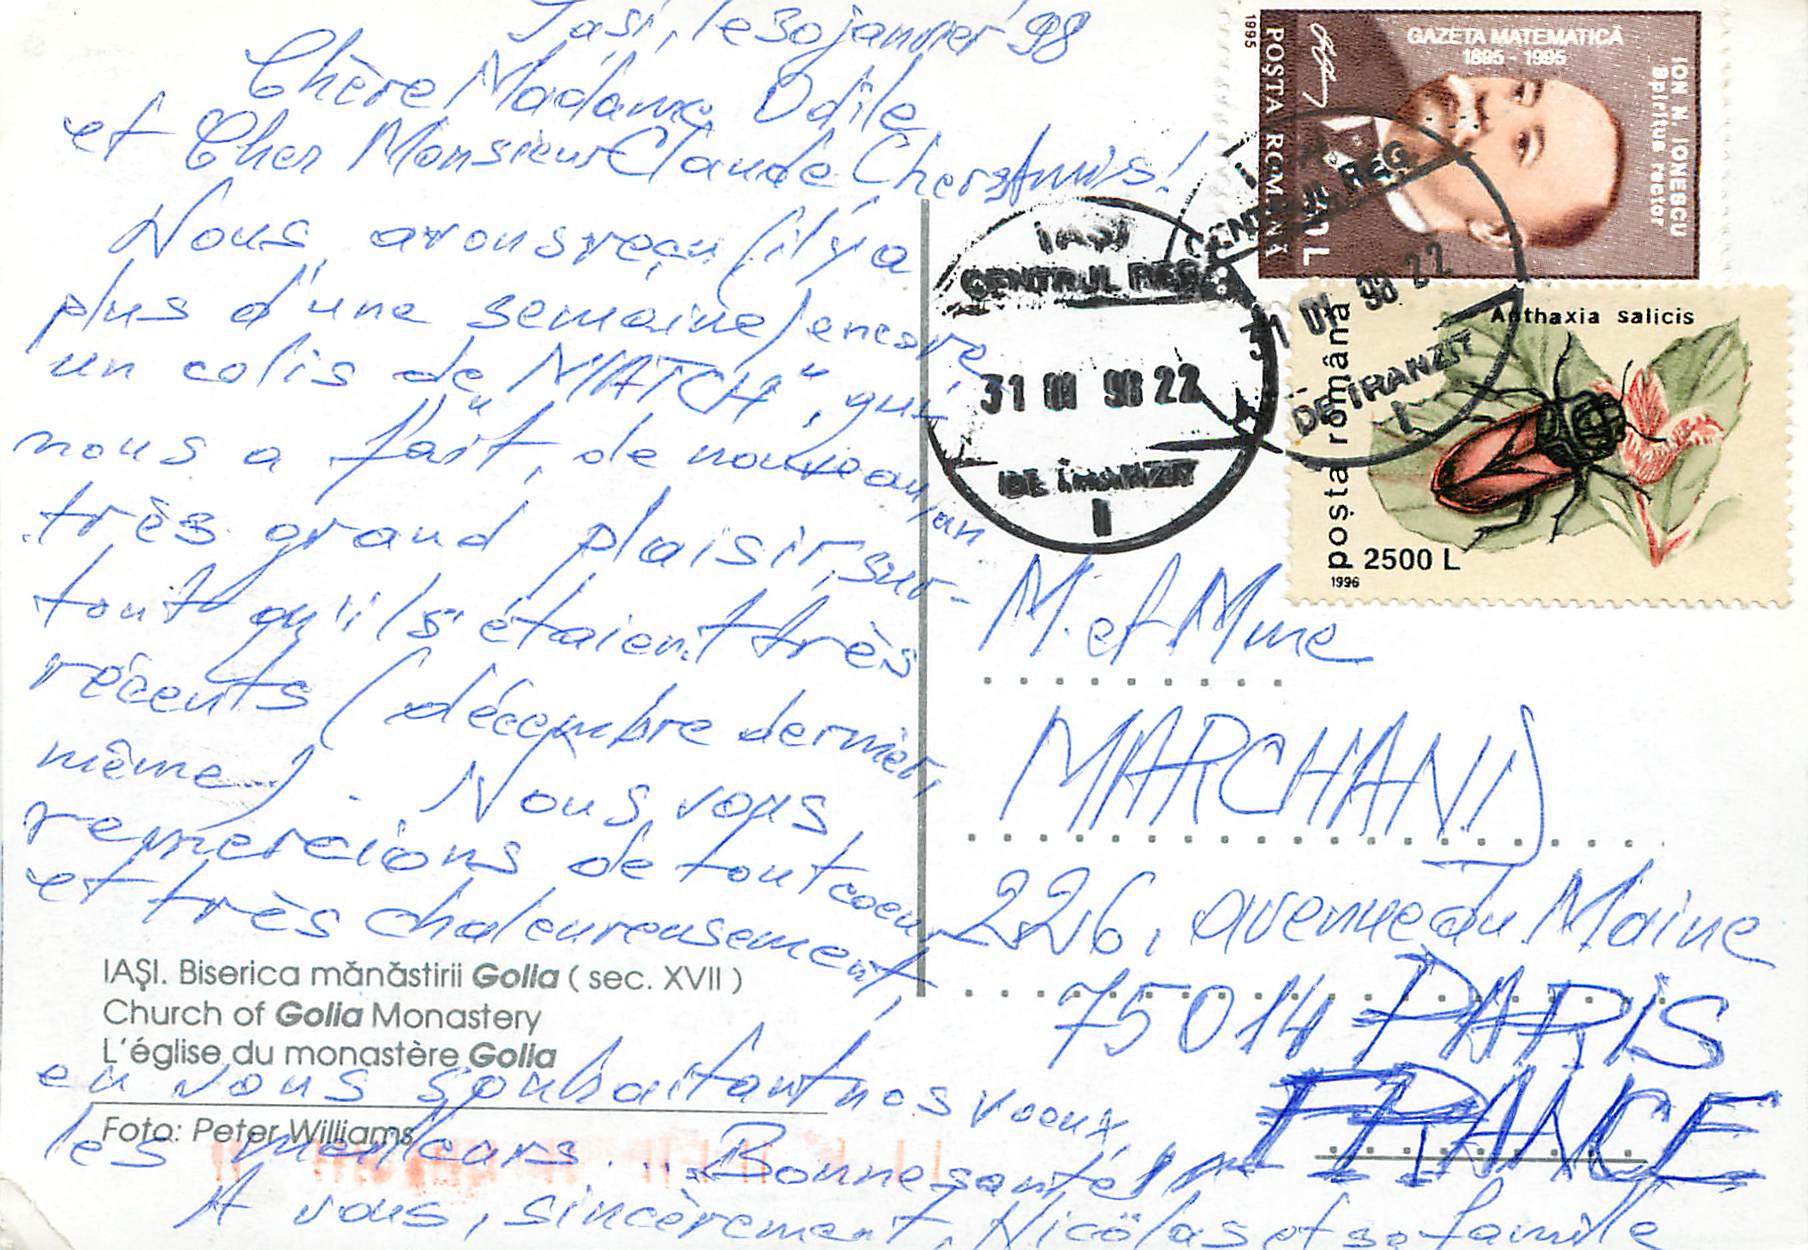 Iasi, le 30 janvier '98
Chère Madame Odile
et Cher Monsieur Claude Cherstamis!
Nous avons reçu (il y a
plus d'une semaine) encore
un colis de "MATCH", qui
nous a fait, de nouveau, un
très grand plaisir, sur-
tout qu'ils étaient très
récents (décembre dernier,
même). Nous vous
remercions de tout coeur
et très chaleureusement,
en vous souhaitant nos voeux,
les meilleurs... Bonne santé!
A vous, sincèrement, Nicölas et sa famille
IAŞI. Biserica mănăstirii Golia ( sec. XVII )
Church of Golia Monastery
L'église du monastère Golia
Foto: Peter Williams
GAZETA MATEMATICĂ
1895 - 1995
ION N. IONESCU
Spiritus rector
POŞTA ROMÂNĂ
1995
Anthaxia salicis
poşta română
2500 L
1996
IAŞI
CENTRUL REG.
31 01 98 22
DE TRANZIT
1
CENTRUL REG.
31 01 98 22
DE TRANZIT
1
M. et Mme
MARCHAND
226, avenue du Maine
75014 PARIS
FRANCE